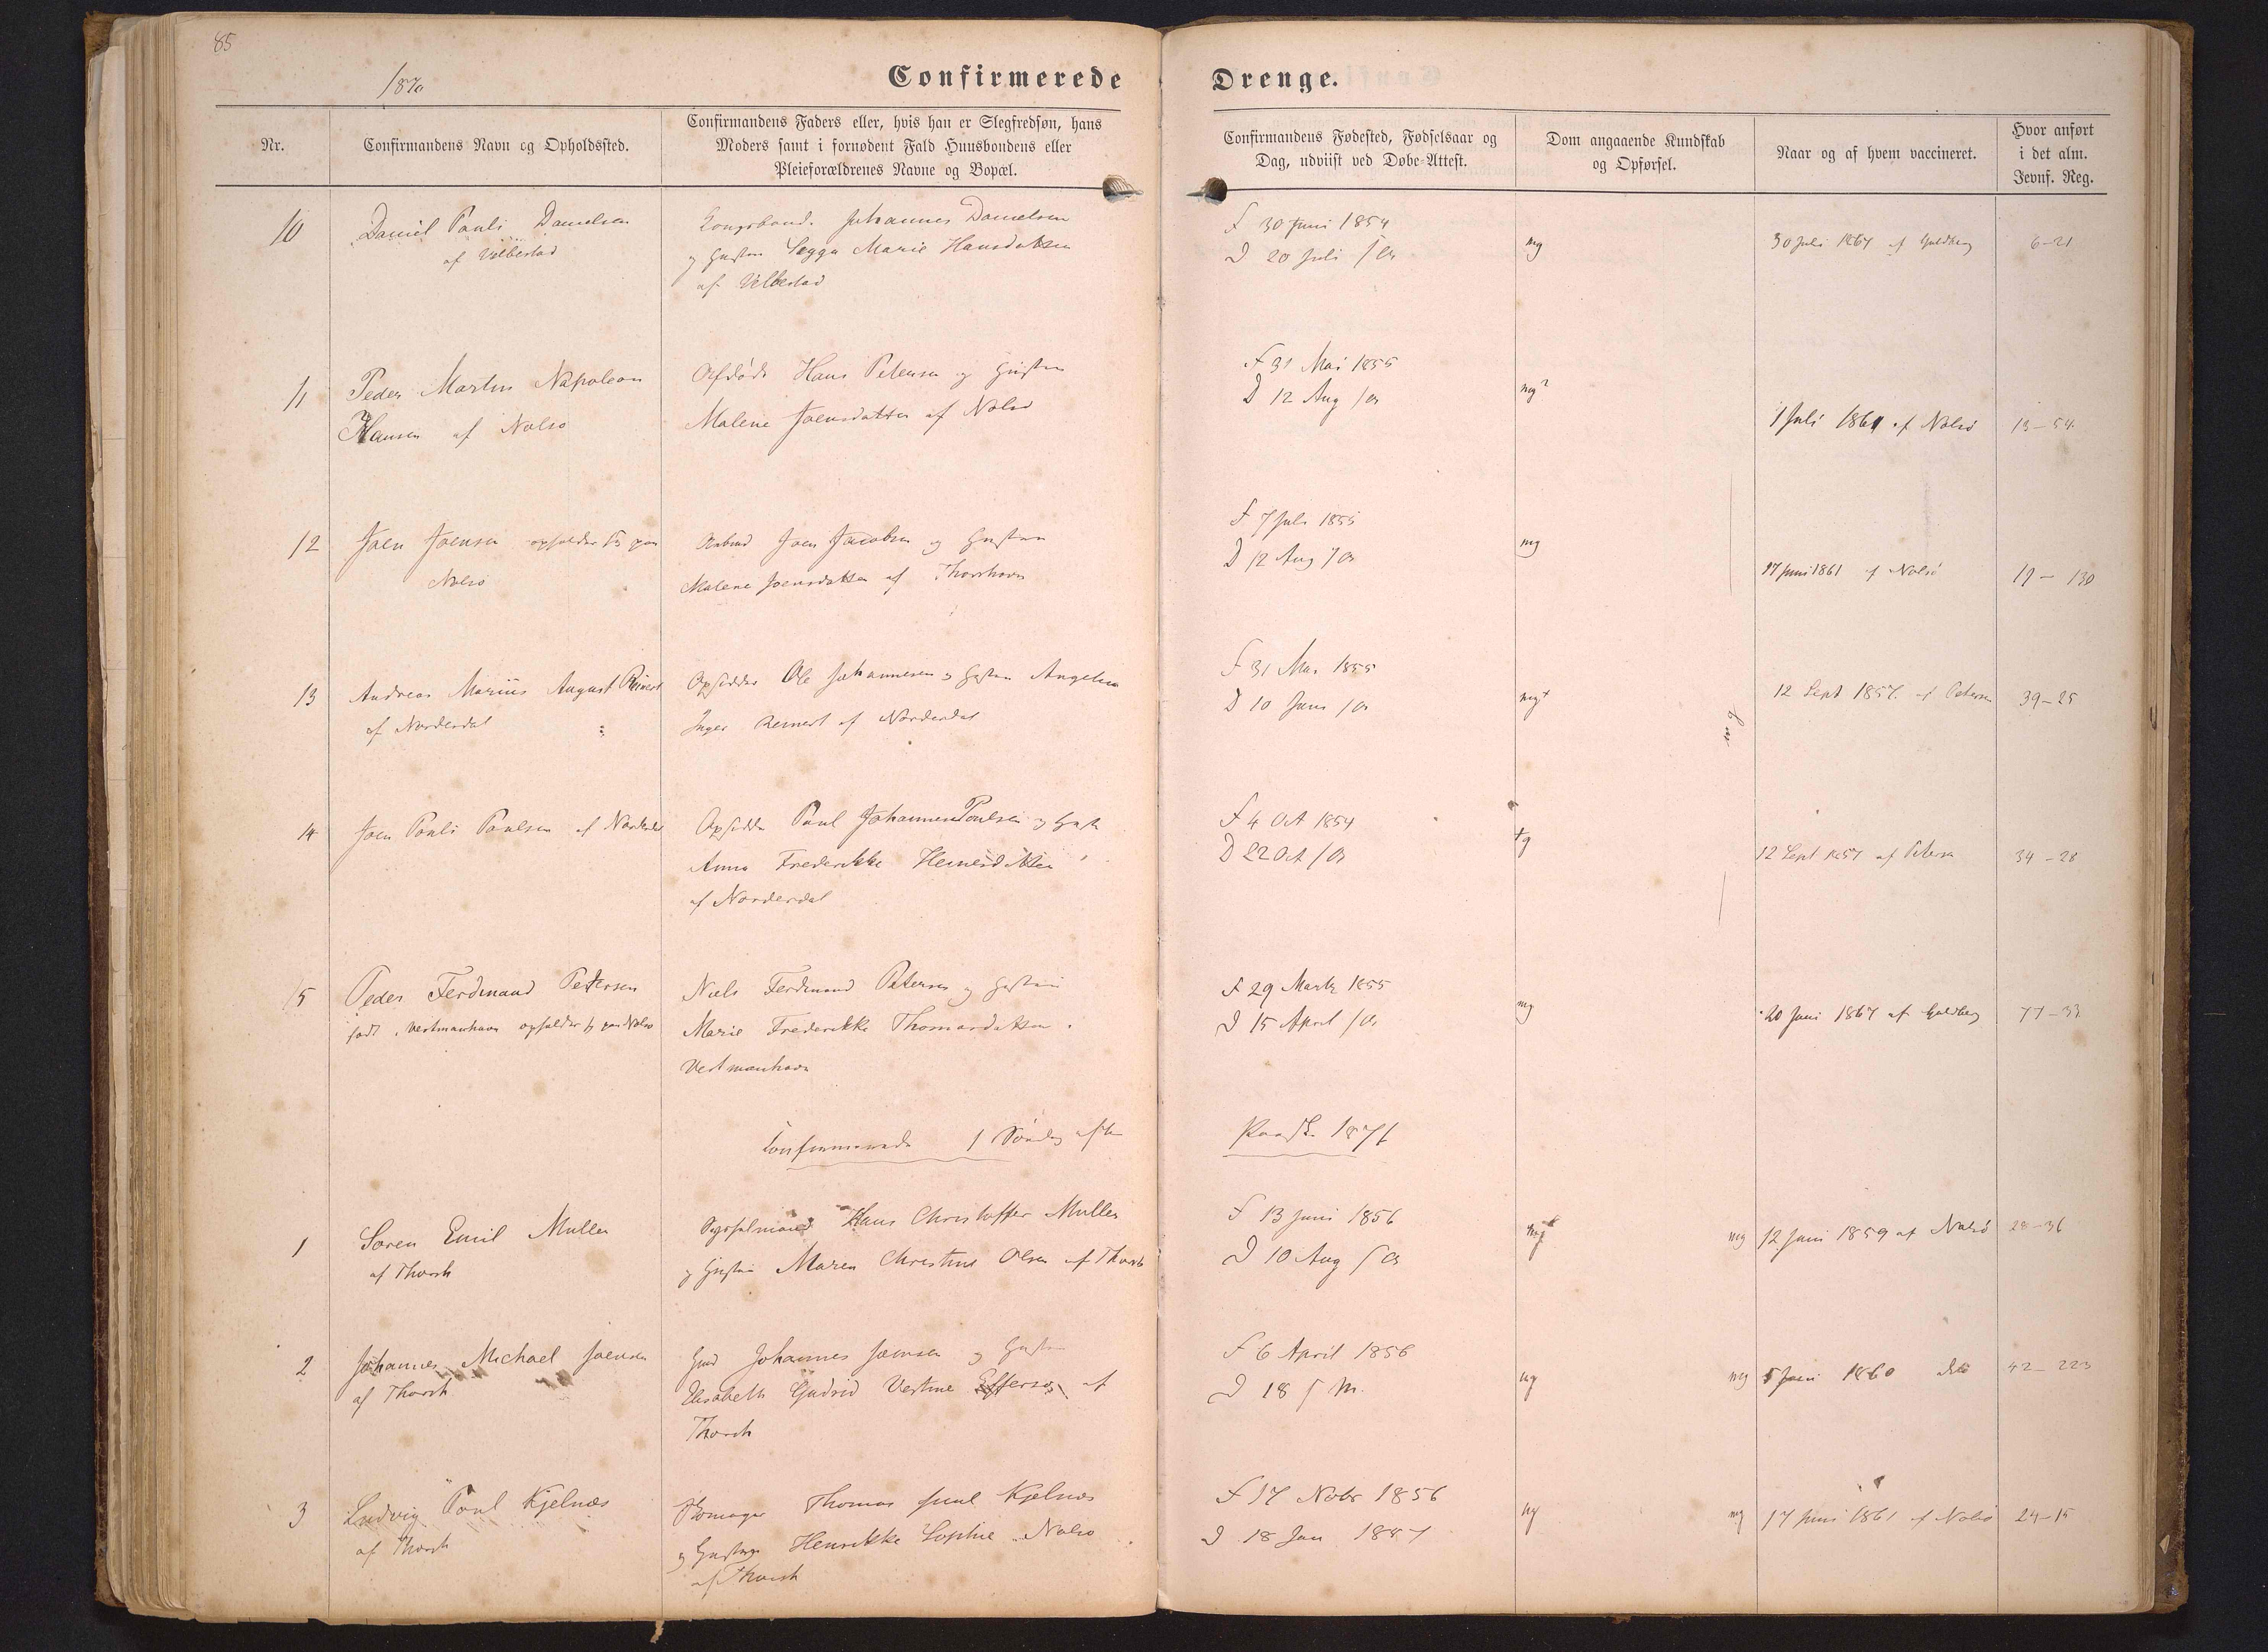 85
1870
Confirmerede Drenge.
Nr.
Confirmandens Navn og Opholdssted.
Confirmandens Faders eller, hvis han er Slegfredsøn, hans
Moders samt i fornødent Fald Huusbondens eller
Pleieforældrenes Navne og Bopæl.
Confirmandens Fødested, Fødselsaar og
Dag, udviist ved Døbe-Attest.
Dom angaaende Kundskab
og Opførsel.
Naar og af hvem vaccineret.
Hvor anført
i det alm.
Jevnf. Reg.
10
Daniel Pauli Danielsen
af Velbestad
Kongsbond. Johannes Danielsen
og Hustru Segga Marie Hansdatter
af Velbestad
F 30 Juni 1854
D 20 Juli
mg
30 Juli 1867 af Goldberg
6-21
11
Peder Martin Napoleon
Hansen af Nolsø
Afdøde Hans Petersen og Hustru
Malene Joensdatter af Nolsø
F 31 Mai 1855
D 12 Aug
mg?
1 Juli 1861 af Nolsø
13-54
12
Joen Joensen opholder sig paa
Nolsø
Joen Jacobsen og Hustru
Malene Joensdatter af Thorshavn
F 7 Juli 1855
D 12 Aug
mg
17 Juni 1861 af Nolsø
17-130
13
Andreas Marius August Reinert
af Norderdal
Opsidder Ole Johannesen og Hustru Angelica
Inger Reinert af Norderdal
F 31 Mar 1855
D 10 Juni
mg+
12 Sept 1857 af Petersen
39-25
14
Joen Pauli Poulsen af Norderdal
Opsidder Poul Johannes Poulsen og Hustru
Anna Frederikke Heinesdatter
af Norderdal
F 4 Oct 1854
D 22 Oct
tg
12 Sept 1857 af Petersen
34-28
15
Peder Ferdinand Petersen
født i Vestmanhavn opholder sig paa Nolsø
Niels Ferdinand Petersen og Hustru
Marie Frederikke Thomasdatter
Vestmanhavn
F 29 Marts 1855
D 15 April
mg
20 Juni 1867 af Goldberg
77-33
Confirmerede 1 Søndag efter Paaske 1871
1
Søren Emil Muller
af Thorsh
Sysselmand Hans Christoffer Muller
og Hustru Maren Christine Olsen af Thorsh
F 13 Juni 1856
D 10 Aug
mg
12 Juni 1859 af Nolsø
28-36
2
Johannes Michael Joensen
af Thorsh
Johannes Joensen og Hustru
Elisabeth Gudrid Vestine Effersøe af
Thorsh
F 6 April 1856
D 18
ug
mg
5 Juni 1860 dito
42-223
3
Ludvig Poul Kjelnæs
af Thorsh
Skomager Thomas Juul Kjelnæs
og Hustru Henrikke Sophie Nolsø
af Thorsh
F 17 Nobr 1856
D 18 Jan 1857
ug
mg
17 Juni 1861 af Nolsø
24-15